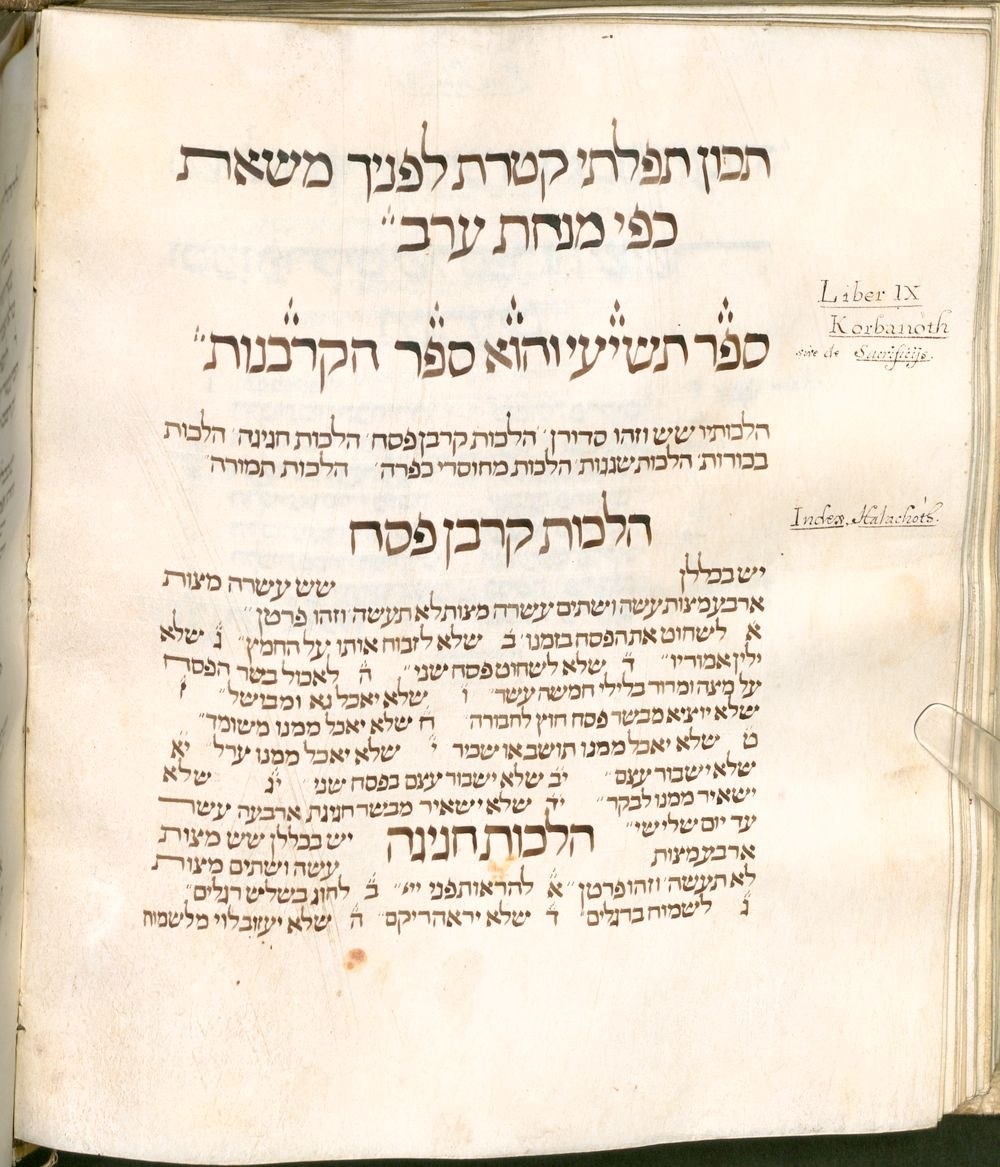 תכון תפלתי קטרת לפניך משאת
כפי מנחת ערב״
ספר תשיעי והוא ספר הקרבנות״
Liber IX
Korbanoth
sive de Sacrificijs.
הלכותיו שש וזהו סדורן׳ הלכות קרבן פסח׳ הלכות חגיגה׳ הלכות
בכורות׳ הלכות שגגות׳ הלכות מחוסרי כפרה׳ הלכות תמורה׳
Index Halachoth.
הלכות קרבן פסח
יש בכללן שש עשרה מצות
ארבע מצות עשה ושתים עשרה מצות לא תעשה׳ וזהו פרטן״
א לשחוט את הפסח בזמנו׳ ב שלא לזבוח אותו על החמץ״ ג שלא
ילין אמוריו״ ד שלא לשחוט פסח שני״ ה לאכול בשר הפסח
על מצה ומרור בלילי חמשה עשר״ ו שלא יאכל נא ומבושל״ ז
שלא יוציא מבשר פסח חוץ לחבורה״ ח שלא יאכל ממנו משומד״
ט שלא יאכל ממנו תושב או שכיר י שלא יאכל ממנו ערל יא
שלא ישבור עצם״ יב שלא ישבור עצם בפסח שני״ יג שלא
ישאיר ממנו לבקר״ יד שלא ישאיר מבשר חגיגת ארבעה עשר
עד יום שלישי״
הלכות חגיגה
יש בכללן שש מצות
ארבע מצות עשה ושתים מצות
לא תעשה׳ וזהו פרטן״ א להראות פני ייי״ ב לחוג בשלש רגלים״
ג לשמוח ברגלים״ ד שלא יראה ריקם״ ה שלא יעזוב לוי מלשמוח